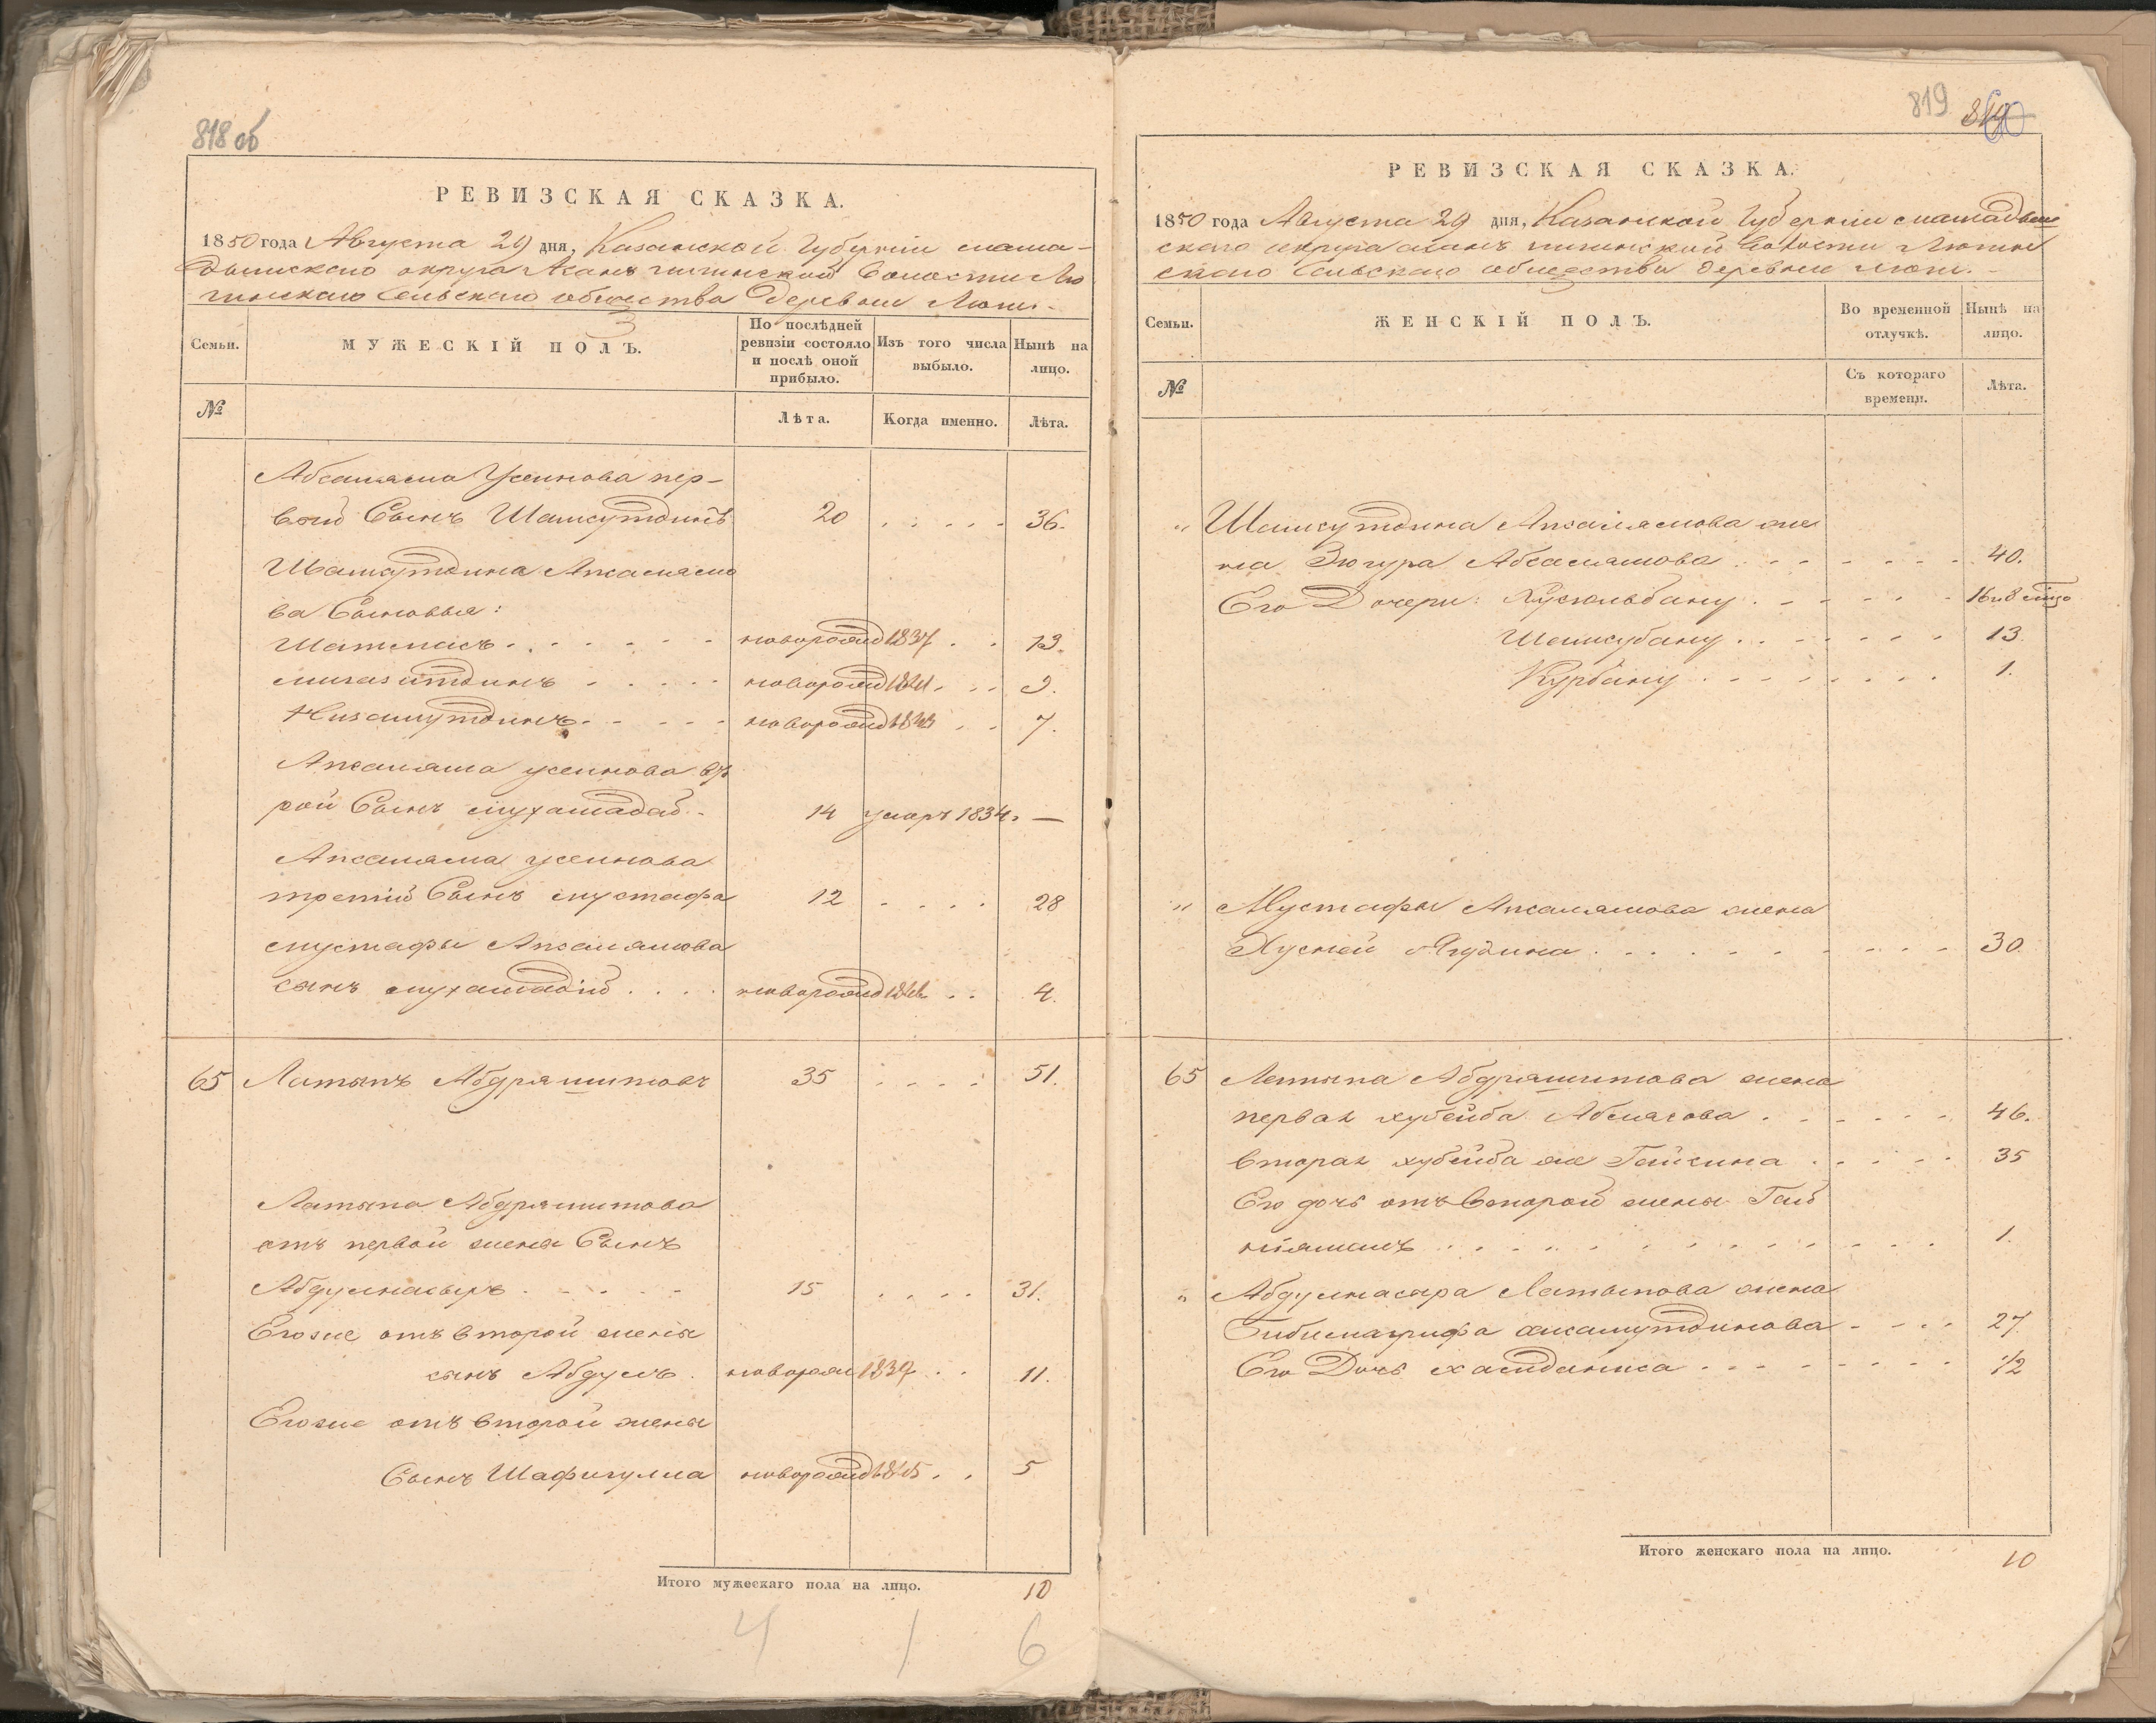 818 об
РЕВИЗСКАЯ СКАЗКА.
1850 года Августа 29 дня, Казанской Губерніи мама-
дышскаго округа Асанъ Волости Лю
гинскаго Сельскаго общества деревни Люги.
Семьи.
МУЖЕСКІЙ ПОЛЪ.
По послѣдней ревизіи состояло и послѣ оной прибыло.
Изъ того числа выбыло.
Нынѣ на лицо.
№
Лѣта.
Когда именно.
Лѣта.
Абсаляма Усеинова пер-
вой Сынъ Шамсутдинъ 20 . . . . . 36.
Шамсутдина Апсалямо
ва Сыновья:
. . . . . . новорожд 1837 . . 13.
мигазитдинъ . . . . новорожд 1841 . . . 9.
Низамутдинъ . . . . новорожд 1843 . . 7.
Апсаляма усеинова вто
рой Сынъ мухамадей . 14 умеръ 1834. —
Апсаляма усеинова
третій Сынъ мустафа 12 . . . . 28
мустафы Апсалямова
сынъ мухамадій . . . . новорожд 1846 . . 4.
65 Латыпъ Абдряшитовъ 35 . . . . 51.
Латыпа Абдряшитова
отъ первой жены Сынъ
Абдулнасыръ . . . . . 15 . . . . 31.
Егоже отъ второй жены
сынъ Абдулъ . новорож 1839 . . 11.
Егоже отъ второй жены
Сынъ Шафигулла новорожд 1845 . . 5
Итого мужескаго пола на лицо. 10
4 1 6
819
РЕВИЗСКАЯ СКАЗКА.
1850 года Августа 29 дня, Казанской Губерніи мамадыш
скаго округа асанъ Волости Люгин
скаго Сельскаго общества деревни Люги.
Семьи.
ЖЕНСКІЙ ПОЛЪ.
Во временной отлучкѣ.
Нынѣ на лицо.
№
Съ котораго времени.
Лѣта.
„ Шамсутдина Апсалямова же
на Зюгура Абсалямова . . . . . . . 40.
Его Дочери: . . . . . 16 и 8 мцо
Шамсубану . . . . . . . 13.
Курбану . . . . . . . . 1.
„ Мустафы Апсалямова жена
Хусней Ягудина . . . . . . . . . 30.
65 Латыпа Абдряшитова жена
первая хубейба Абдулова . . . . . 46.
вторая хубейба же Гайсина . . . . . 35
Его дочь отъ второй жены Гай
ніямалъ . . . . . . . . . . . . 1.
„ Абдулнасыра Латыпова жена
. . . . 27.
Его Дочь . . . . . . . . 1/2
Итого женскаго пола на лицо. 10